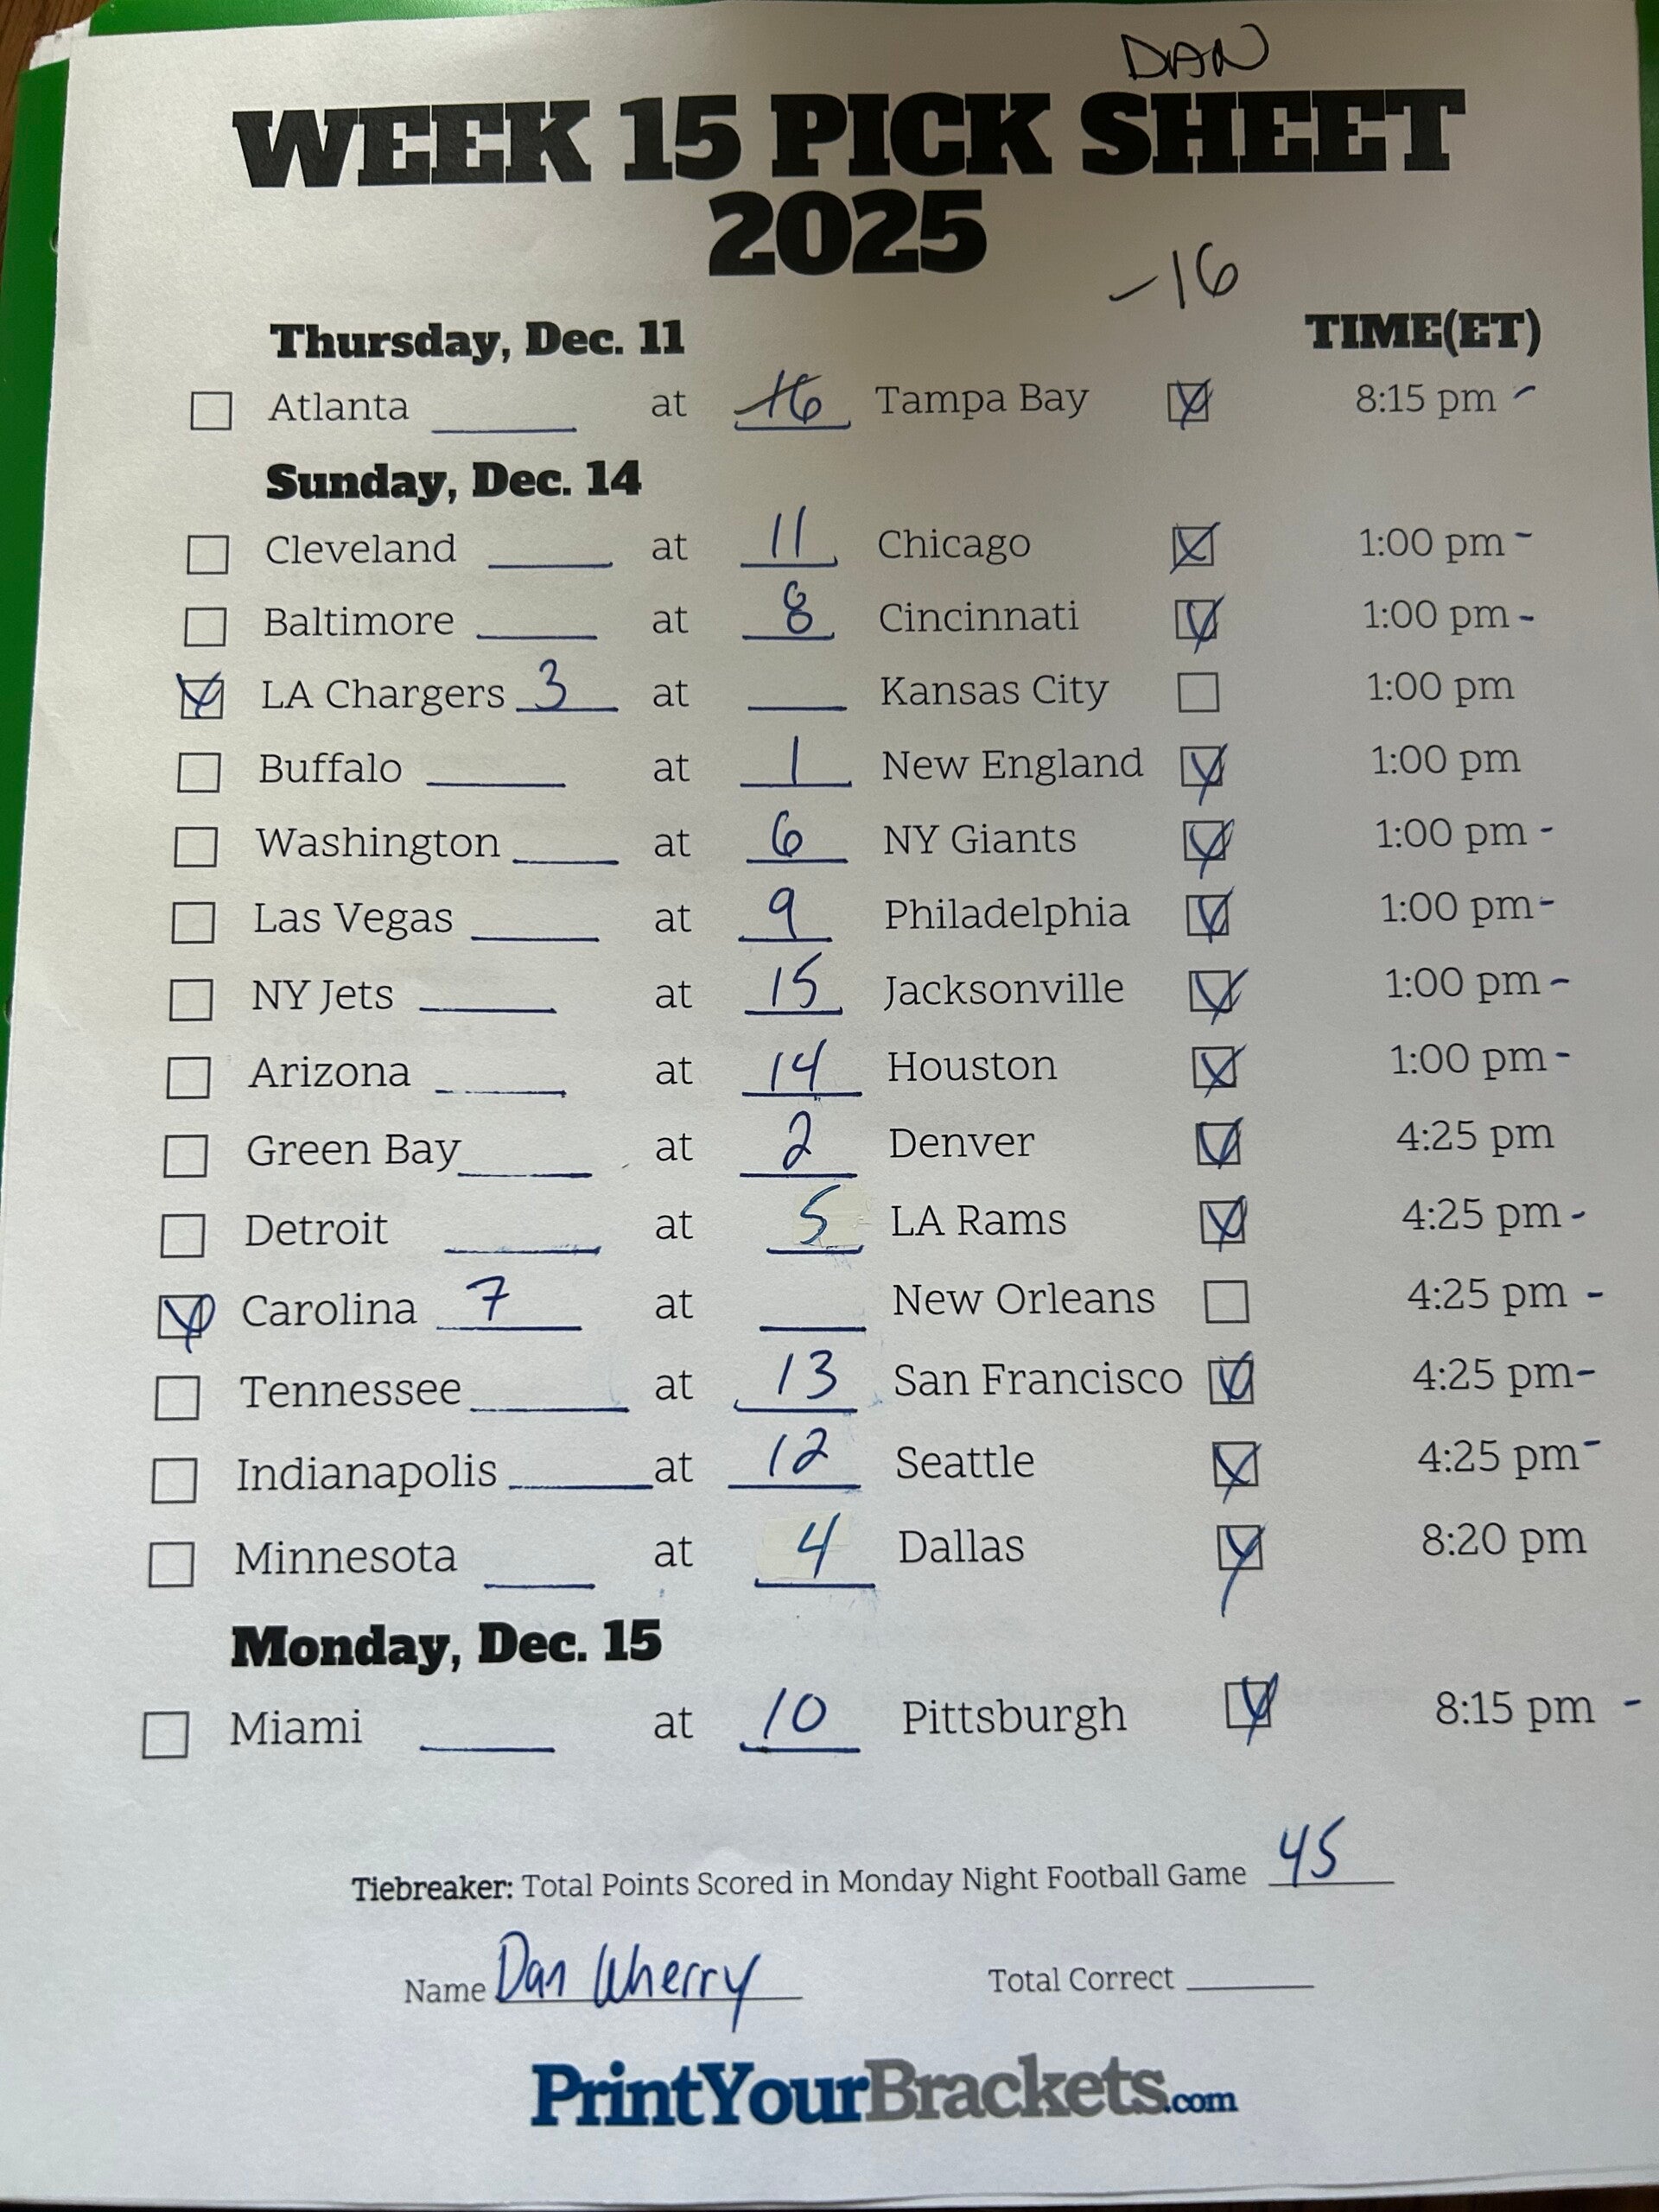 DAN
WEEK 15 PICK SHEET
2025
-16
Thursday, Dec. 11 TIME(ET)
Atlanta at 16 Tampa Bay 8:15 pm -
Sunday, Dec. 14
Cleveland at 11 Chicago 1:00 pm -
Baltimore at 8 Cincinnati 1:00 pm -
LA Chargers 3 at Kansas City 1:00 pm
Buffalo at 1 New England 1:00 pm
Washington at 6 NY Giants 1:00 pm -
Las Vegas at 9 Philadelphia 1:00 pm -
NY Jets at 15 Jacksonville 1:00 pm -
Arizona at 14 Houston 1:00 pm -
Green Bay at 2 Denver 4:25 pm
Detroit at 5 LA Rams 4:25 pm -
Carolina 7 at New Orleans 4:25 pm -
Tennessee at 13 San Francisco 4:25 pm -
Indianapolis at 12 Seattle 4:25 pm -
Minnesota at 4 Dallas 8:20 pm
Monday, Dec. 15
Miami at 10 Pittsburgh 8:15 pm -
Tiebreaker: Total Points Scored in Monday Night Football Game 45
Name Dan Wherry Total Correct
PrintYourBrackets.com